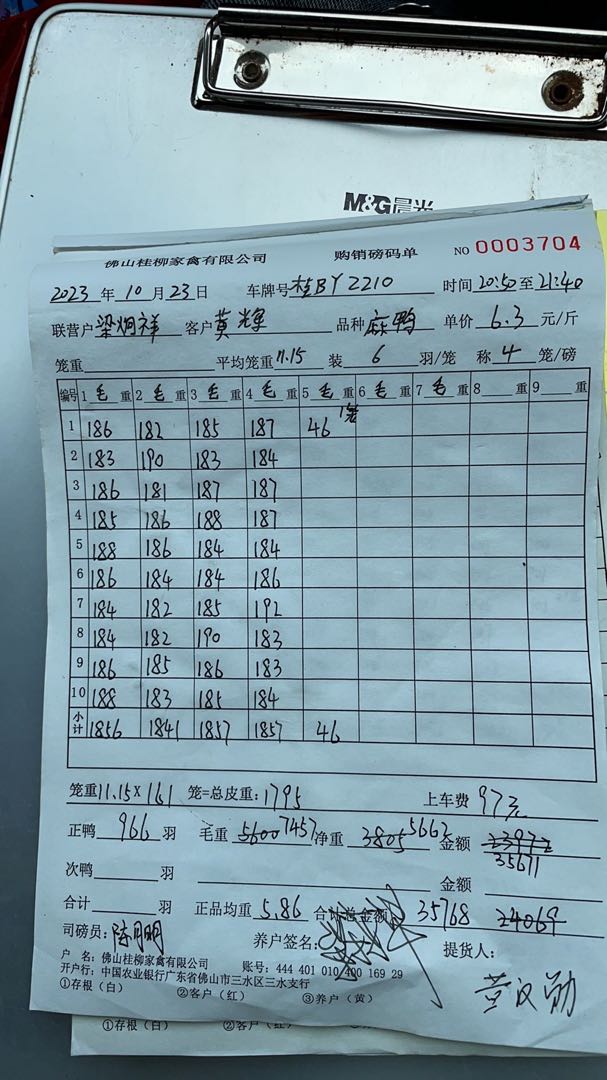 M&G晨光
佛山桂柳家禽有限公司 购销磅码单 NO 0003704
2023 年 10 月 23 日 车牌号 桂BY2210 时间 20:50 至 21:40
联营户 梁炯祥 客户 黄辉 品种 麻鸭 单价 6.3 元/斤
笼重 平均笼重 11.15 装 6 羽/笼 称 4 笼/磅
编号 1 毛 重 2 毛 重 3 毛 重 4 毛 重 5 毛 重 6 毛 重 7 毛 重 8 重 9 重
1 186 182 185 187 46 1笼
2 183 190 183 184
3 186 181 187 187
4 185 186 188 187
5 188 186 184 184
6 186 184 184 186
7 184 182 185 192
8 184 182 190 183
9 186 185 186 183
10 188 183 185 184
小计 1856 1841 1857 1857 46
笼重 11.15 X 161 笼=总皮重: 1795 上车费 97元
正鸭 966 羽 毛重 5600 7457 净重 3805 5662 金额 23972
35671
次鸭 羽 金额
合计 羽 正品均重 5.86 合计总金额 35768 24069
司磅员: 陈月明 养户签名: 提货人:
户 名: 佛山桂柳家禽有限公司 账号: 444 401 010 400 169 29
开户行: 中国农业银行广东省佛山市三水区三水支行
①存根(白) ②客户(红) ③养户(黄)
①存根(白) ②客户(红)